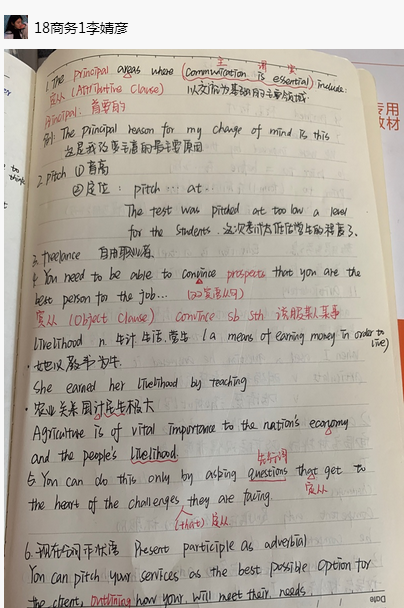 18商务1李婧彦
主 谓 宾
1. The principal areas where (communication is essential) include:
定从 (Attributive Clause) 以交流为基础的主要领域.
Principal: 首要的
例: The principal reason for my change of mind is this
这是我改变主意的最主要原因
2. pitch ① 音高
② 定位: pitch ... at..
The test was pitched at too low a level
for the students. 这次考试大大低估学生的程度了.
3. freelance 自由职业者.
4. You need to be able to convince prospects that you are the
best person for the job...
宾从 (Object Clause) convince sb sth 说服某人某事
Livelihood n. 生计. 生活. 营生 (a means of earning money in order to
live)
· 她以教书为生.
She earned her livelihood by teaching
· 农业关系国计民生极大
Agriculture is of vital importance to the nation's economy
and the people's livelihood.
先行词
5. You can do this only by asking questions that get to
定从
the heart of the challenges they are facing.
(that) 定从
6. 现在分词作状语 Present participle as adverbial
You can pitch your services as the best possible option for
the client, outlining how your will meet their needs.
专用
教材
Date